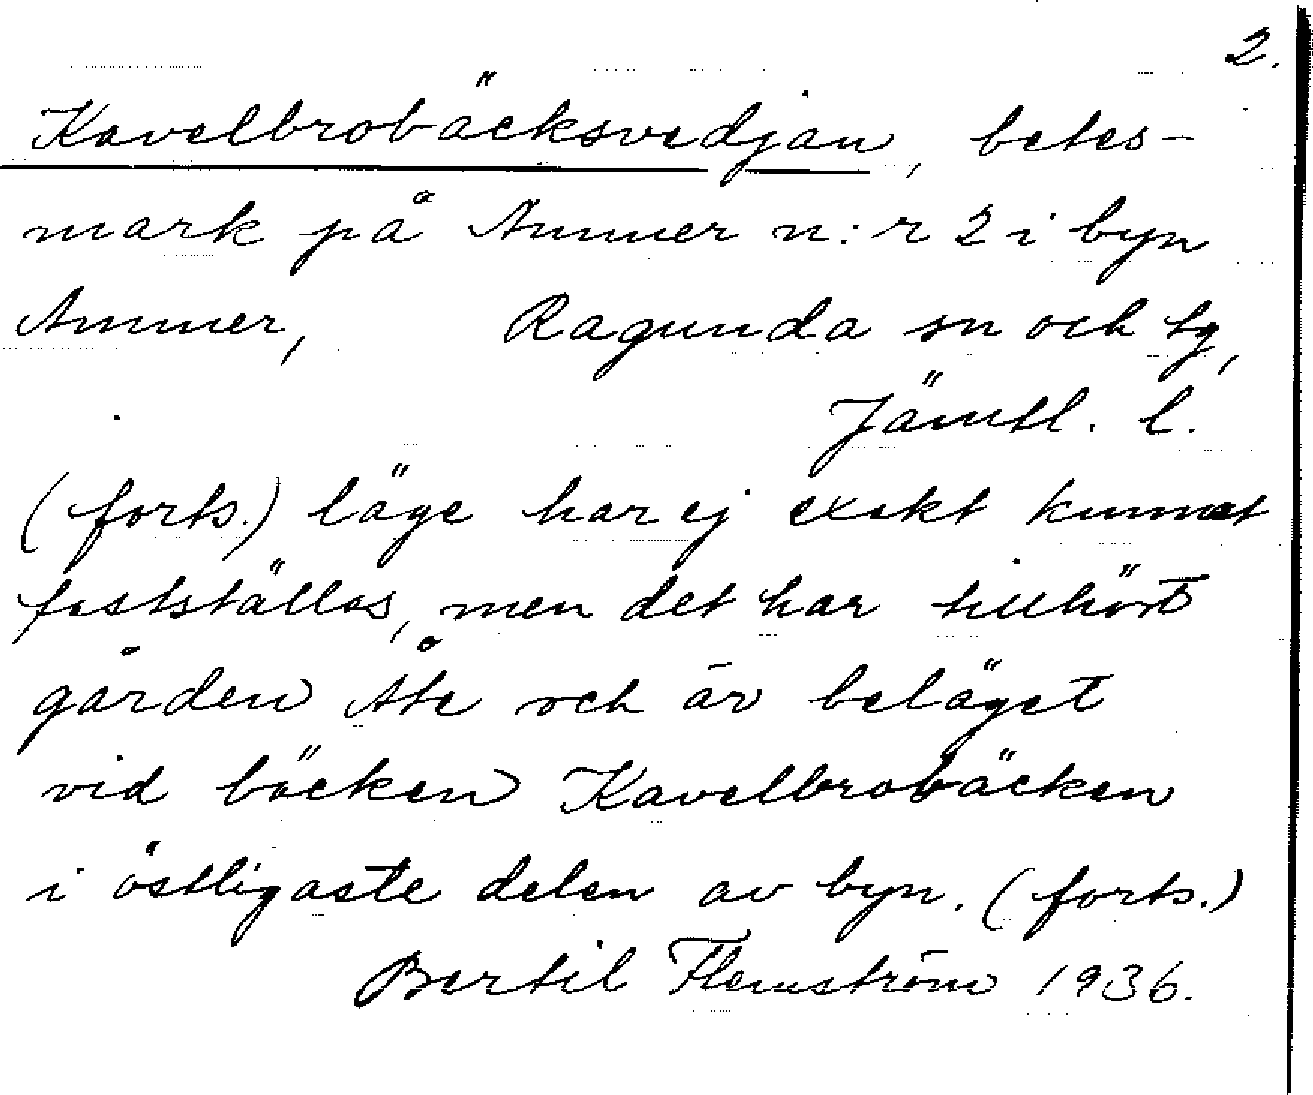 2.
Kavelbrobäcksvedjan, betes-
mark på Ammer n:r 2 i byn
Ammer, Ragunda sn och tg,
Jämtl. l.
(forts.) läge har ej exakt kunnat
fastställas, men det har tillhört
gården Åte och är beläget
vid bäcken Kavelbrobäcken
i östligaste delen av byn. (forts.)
Bertil Flemström 1936.